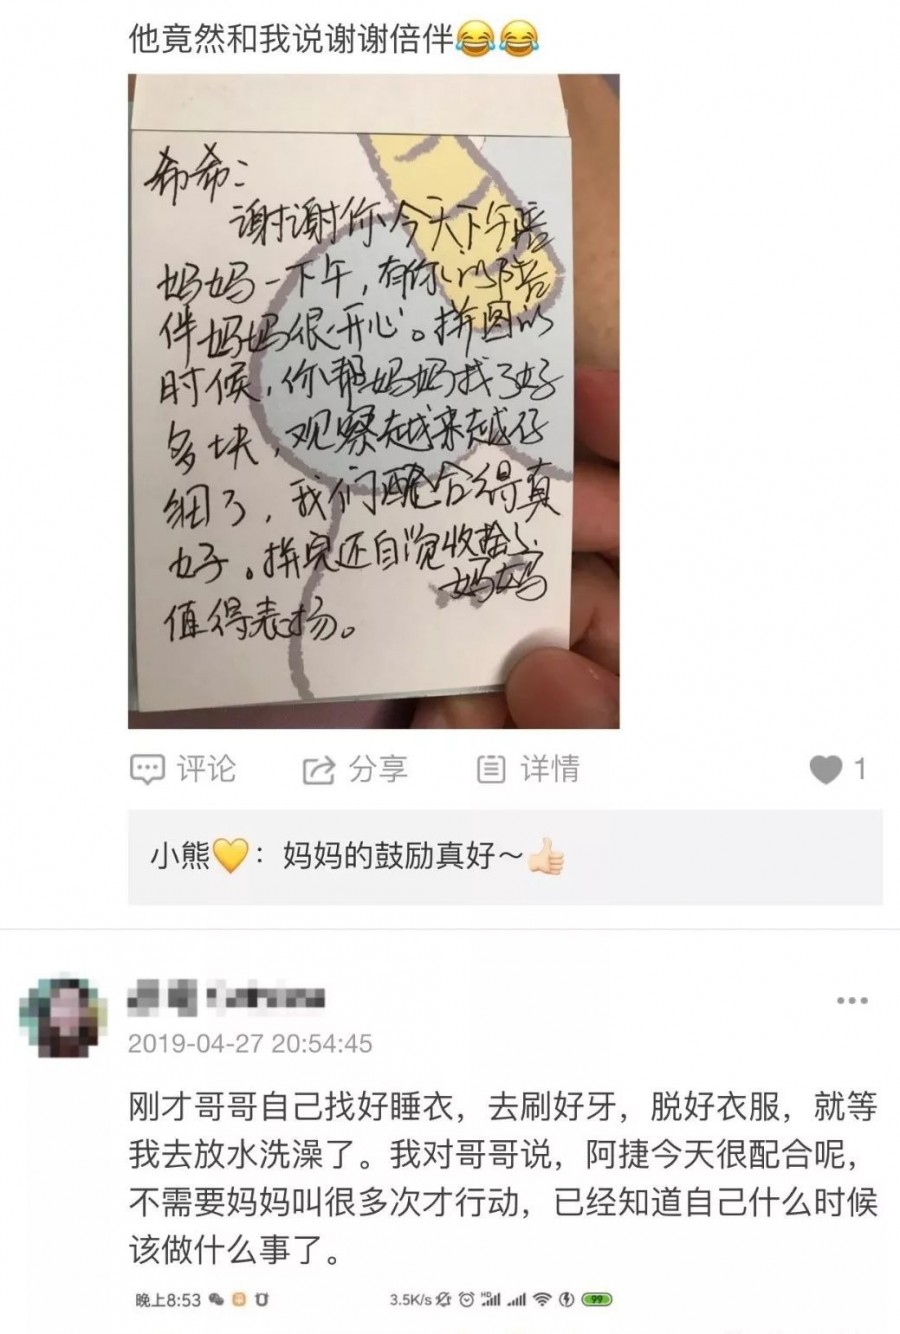 他竟然和我说谢谢倍伴😂😂
希希：
谢谢你今天下午陪
妈妈一下午，有你的陪
伴妈妈很开心。拼图的
时候，你帮妈妈找了好
多块，观察越来越仔
细了，我们配合得真
好。拼完还自觉收拾了，
妈妈
值得表扬。
评论 分享 详情 1
小熊💛：妈妈的鼓励真好～👍🏻
2019-04-27 20:54:45
刚才哥哥自己找好睡衣，去刷好牙，脱好衣服，就等
我去放水洗澡了。我对哥哥说，阿捷今天很配合呢，
不需要妈妈叫很多次才行动，已经知道自己什么时候
该做什么事了。
晚上8:53 3.5K/s HD 99